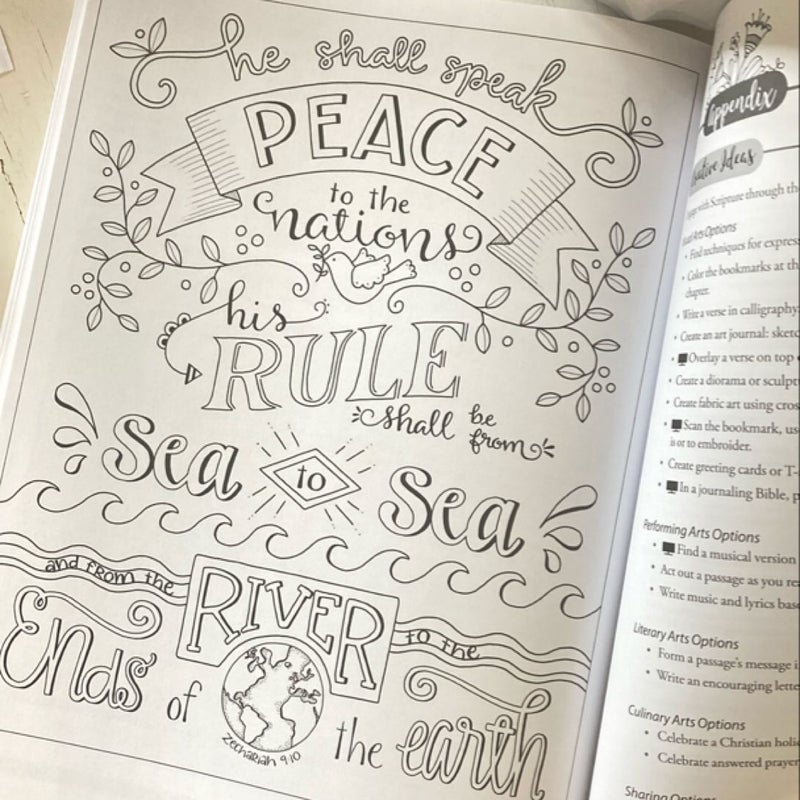 he shall speak
PEACE
to the
nations
his
RULE
shall be
from
Sea to Sea
and from the
RIVER
to the
Ends of
the earth
Zechariah 9:10
appendix
Ideas
with Scripture through
Arts Options
• Find techniques for
• Color the bookmarks at
chapter.
• Write a verse in calligraphy
• Create an art journal:
• Overlay a verse on top
• Create a diorama or
• Create fabric art using
• Scan the bookmark,
is or to embroider.
• Create greeting cards or
• In a journaling Bible,
Performing Arts Options
• Find a musical version
• Act out a passage as you
• Write music and lyrics
Literary Arts Options
• Form a passage's message
• Write an encouraging
Culinary Arts Options
• Celebrate a Christian
• Celebrate answered
Sharing